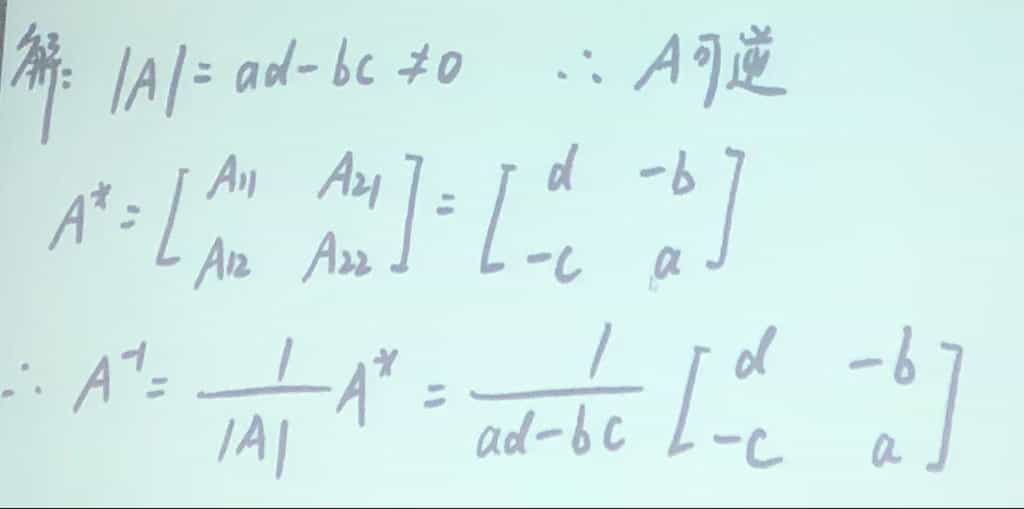 解: |A| = ad - bc ≠ 0 ∴ A可逆
A* = [A₁₁ A₂₁; A₁₂ A₂₂] = [d -b; -c a]
∴ A⁻¹ = 1/|A| A* = 1/(ad-bc) [d -b; -c a]